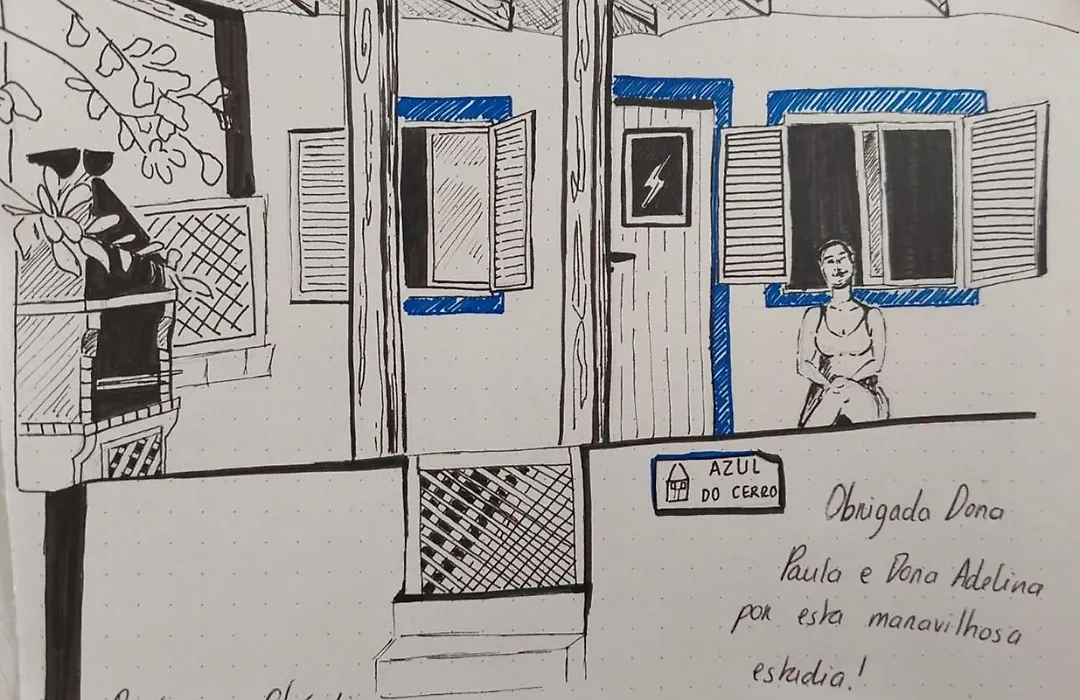 AZUL
DO CERRO
Obrigada Dona
Paula e Dona Adelina
por esta maravilhosa
estadia!